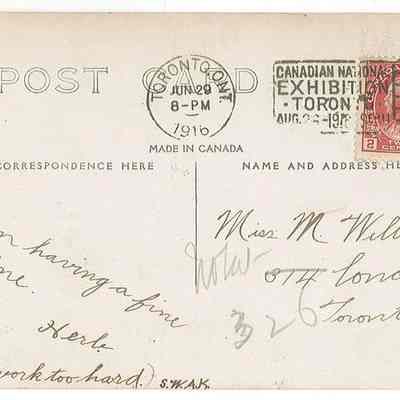 POST CARD
TORONTO, ONT.
JUN 29
8-PM
1916
CANADIAN NATIONA
EXHIBITION
TORONT
AUG. 26-19
2
MADE IN CANADA
CORRESPONDENCE HERE
NAME AND ADDRESS HE
having a fine
Herb.
work too hard.) S.W.A.K.
Miss M Will
314
Toront
326